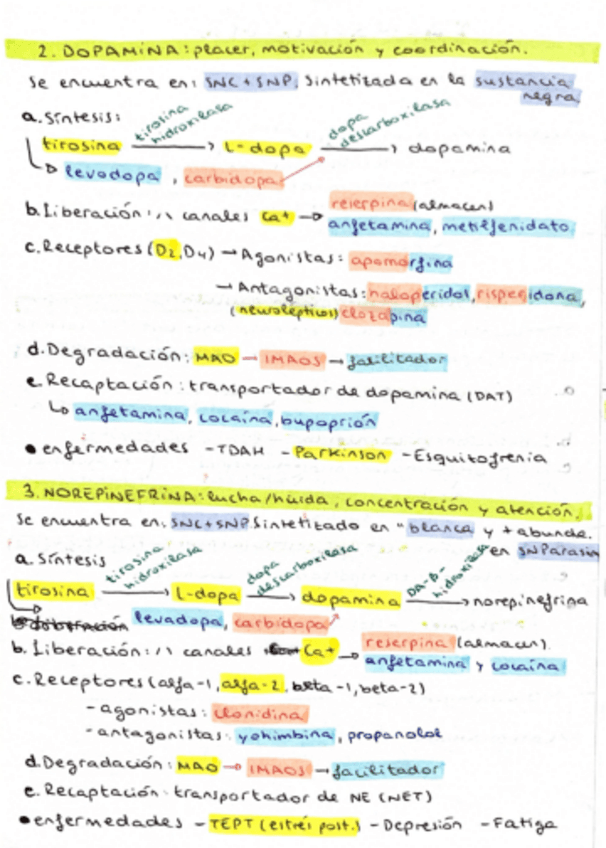 2. DOPAMINA: placer, motivación y coordinación.
Se encuentra en: SNC + SNP. Sintetizada en la sustancia
negra
a. Síntesis:
tirosina hidroxilasa
dopa descarboxilasa
tirosina → L-dopa → dopamina
levodopa, carbidopa
b. Liberación: // canales Ca+ → reserpina (almacen)
anfetamina, metilfenidato.
c. Receptores (D2, D4) → Agonistas: apomorfina
→ Antagonistas: haloperidol, risperidona,
(neurolépticos) clozapina
d. Degradación: MAO → IMAOS → facilitador
e. Recaptación: transportador de dopamina (DAT)
anfetamina, cocaína, bupoprión
• enfermedades - TDAH - Parkinson - Esquitofrenia
3. NOREPINEFRINA: lucha/huida, concentración y atención.
Se encuentra en: SNC + SNP Sintetitado en " blanca y + abunda.
en SNParasim
a. Síntesis
tirosina hidroxilasa
dopa descarboxilasa
DA-B-hidroxilasa
tirosina → L-dopa → dopamina → norepinefrina
levadopa, carbidopa
b. Liberación: // canales Ca+ → reserpina (almacen).
anfetamina y cocaína
c. Receptores (alfa-1, alfa-2, beta-1, beta-2)
- agonistas: clonidina
- antagonistas: yohimbina, propanolol
d. Degradación: MAO → IMAOS → facilitador
e. Recaptación: transportador de NE (NET)
• enfermedades - TEPT (estrés post.) - Depresión - Fatiga